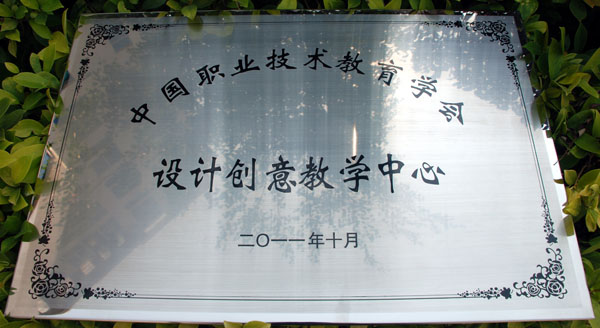 中国职业技术教育学会
设计创意教学中心
二〇一一年十月